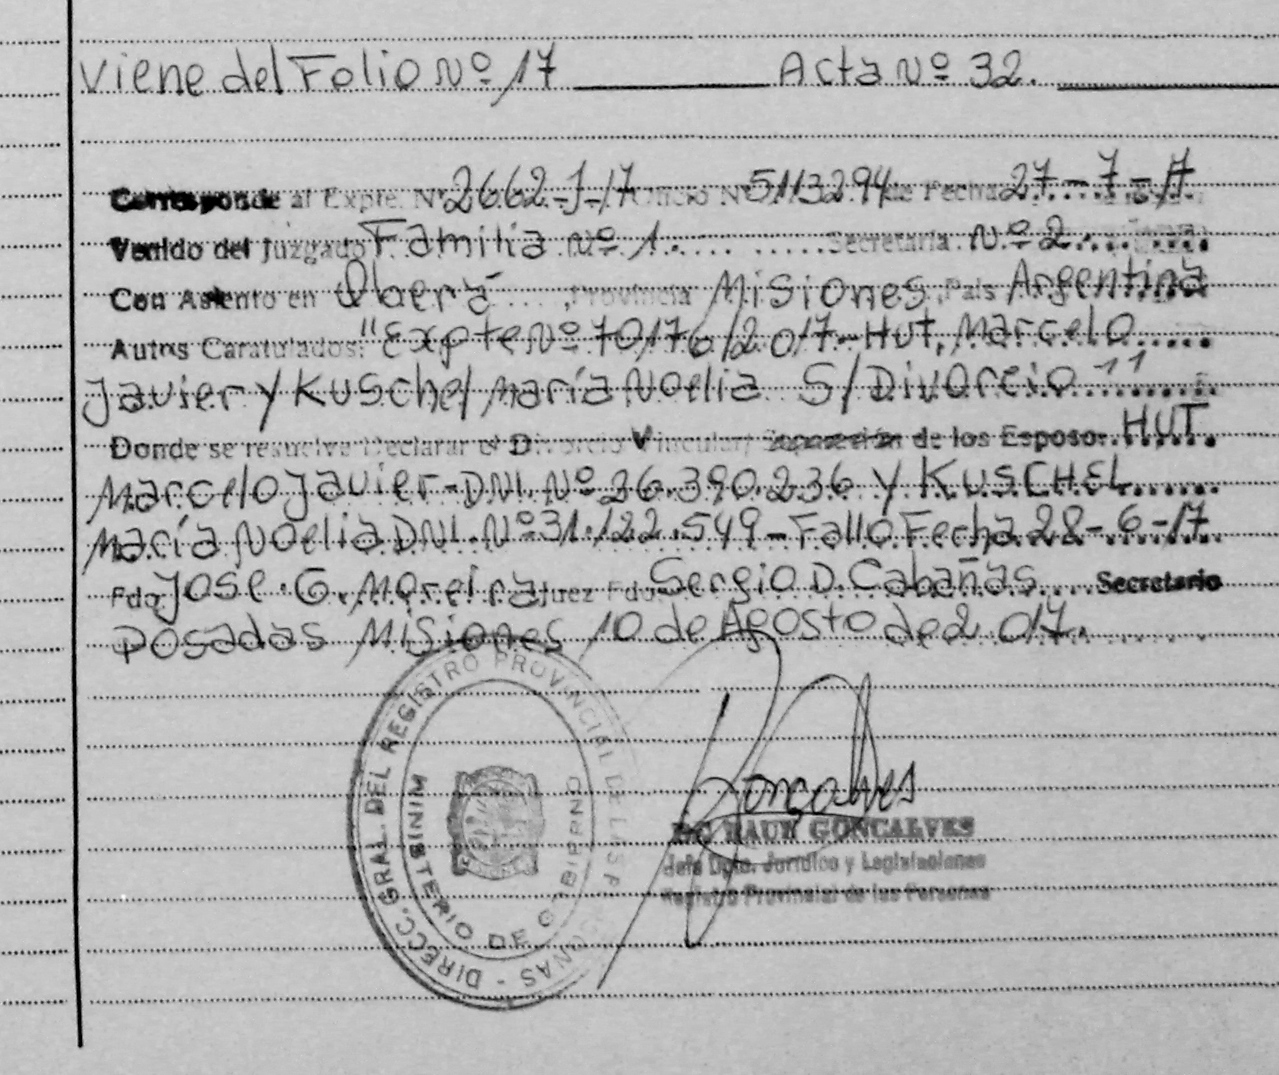 Viene del Folio Nº 17 Acta Nº 32.
Corresponde al Expte. Nº 2662-J-17 Oficio Nº 5113294 de Fecha 27-7-17
Venido del Juzgado Familia Nº 1. Secretaria Nº 2
Con Asiento en Oberá, Provincia Misiones, País Argentina
Autos Caratulados: "Expte Nº 70176/2017-Hut, Marcelo
Javier y Kuschel María Noelia S/Divorcio"
Donde se resuelve Declarar el Divorcio Vincular/ Separación de los Esposos HUT.
Marcelo Javier-DNI. Nº 26.390.236 y KUSCHEL
María Noelia DNI. Nº 31.122.549-Fallo Fecha 28-6-17.
Fdo José.G. Moreira Juez Fdo Sergio D. Cabañas Secretario
Posadas Misiones 10 de Agosto de 2.017.
DIRECC. GRAL. DEL REGISTRO PROVINCIAL DE LAS P
ONAS
MINISTERIO DE GOBIERNO
Gonçalves
RAUL GONCALVES
Jefe Dpto. Jurídico y Legislaciones
Registro Provincial de las Personas